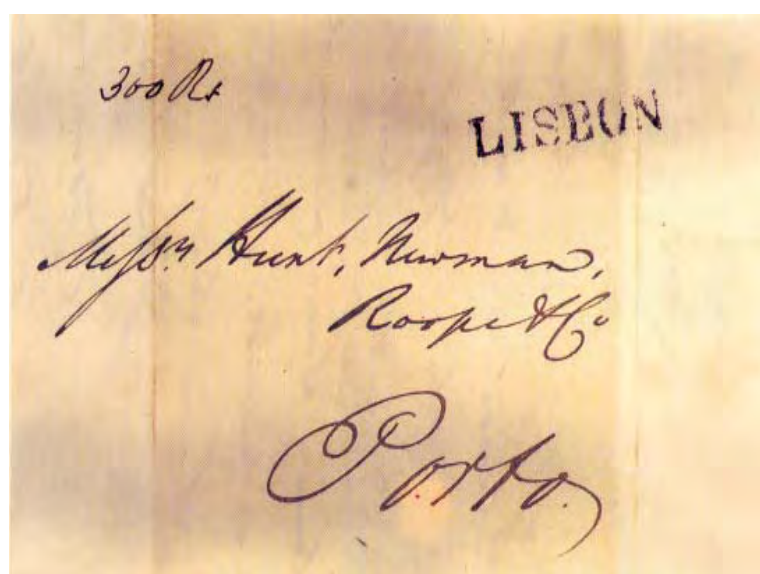 300 Rs
LISBON
Messrs Hunt, Newman,
Roope & Co
Porto.